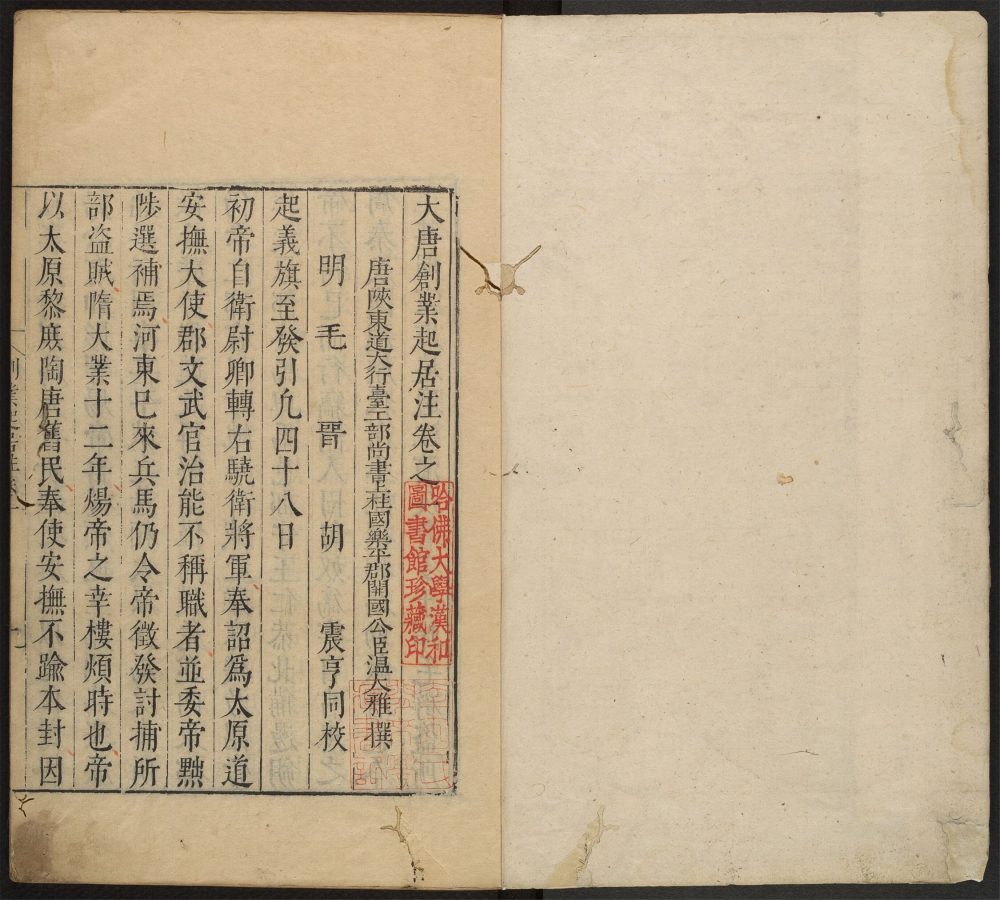 大唐創業起居注卷之一
唐陝東道大行臺工部尚書上柱國樂平郡開國公臣溫大雅撰
明 毛 晉 胡 震亨同校
起義旗至發引凢四十八日
初帝自衛尉卿轉右驍衛將軍奉詔爲太原道
安撫大使郡文武官治能不稱職者並委帝黜
陟選補焉河東已來兵馬仍令帝徵發討捕所
部盜賊隋大業十二年煬帝之幸樓煩時也帝
以太原黎庶陶唐舊民奉使安撫不踰本封因
哈佛大學漢和
圖書館珍藏印